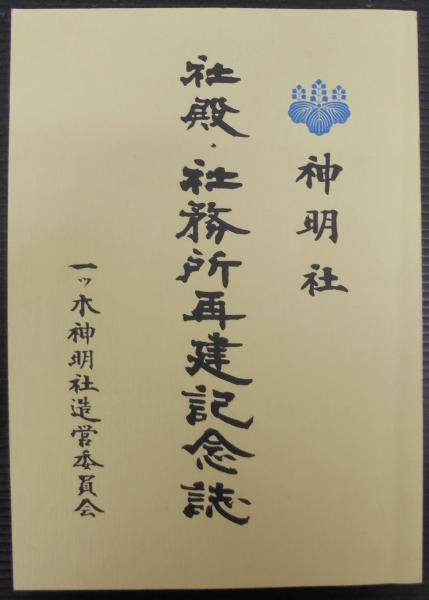 神明社
社殿・社務所再建記念誌
一ッ木神明社造営委員会